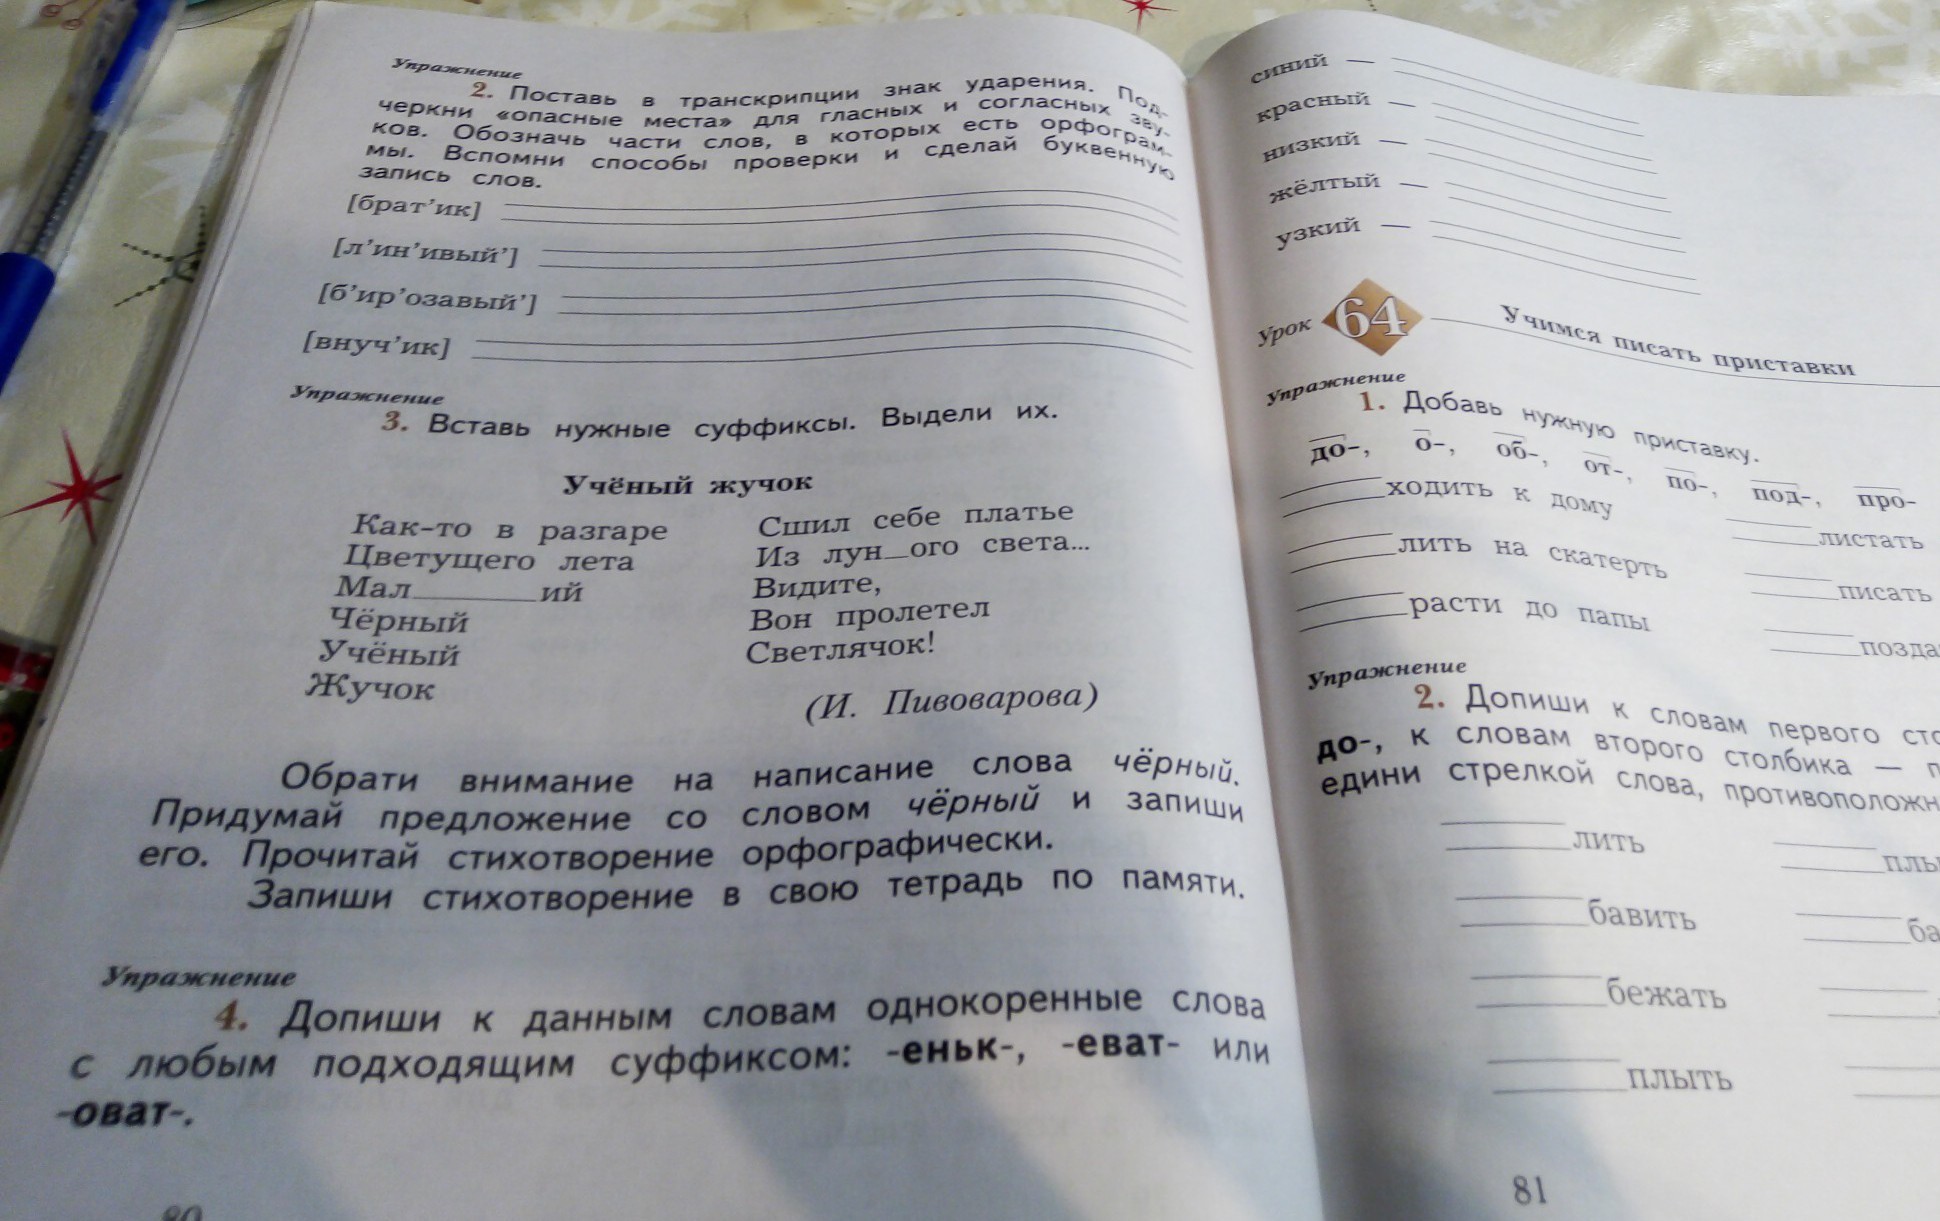 Упражнение
2. Поставь в транскрипции знак ударения. Под-
черкни «опасные места» для гласных и согласных зву-
ков. Обозначь части слов, в которых есть орфограм-
мы. Вспомни способы проверки и сделай буквенную
запись слов.
[брат’ик]
[л’ин’ивый’]
[б’ир’озавый’]
[внуч’ик]
Упражнение
3. Вставь нужные суффиксы. Выдели их.
Учёный жучок
Как-то в разгаре
Цветущего лета
Мал________ий
Чёрный
Учёный
Жучок
Сшил себе платье
Из лун_ого света...
Видите,
Вон пролетел
Светлячок!
(И. Пивоварова)
Обрати внимание на написание слова чёрный.
Придумай предложение со словом чёрный и запиши
его. Прочитай стихотворение орфографически.
Запиши стихотворение в свою тетрадь по памяти.
Упражнение
4. Допиши к данным словам однокоренные слова
с любым подходящим суффиксом: -еньк-, -еват- или
-оват-.
80
синий —
красный —
низкий —
жёлтый —
узкий —
Урок 64 Учимся писать приставки
Упражнение
1. Добавь нужную приставку.
до-, о-, об-, от-, по-, под-, про-
______ходить к дому
______лить на скатерть
______расти до папы
______листать
______писать
______позда
Упражнение
2. Допиши к словам первого сто
до-, к словам второго столбика — п
едини стрелкой слова, противоположн
______лить
______плы
______бавить
______ба
______бежать
______плыть
81